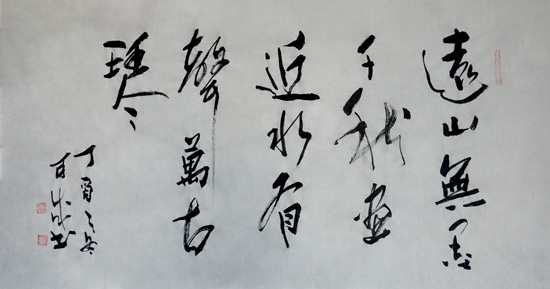 遠山無墨
千秋畫
近水有
聲萬古
琴
丁酉之
書